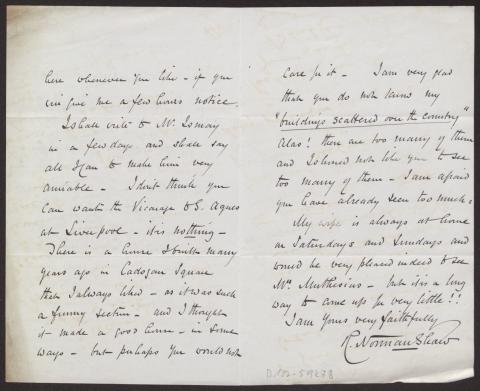 here whenever you like – if you
will give me a few hours notice.
I shall write to Mr. Ismay
in a few days and shall say
all I can to make him very
amiable – I don't think you
can want the Vicarage to S. Agnes
at Liverpool – it is nothing –
There is a house I built many
years ago in Cadogan Square
that I always liked – as it was such
a funny section – and I thought
it made a good house – in some
ways – but perhaps you would not
care for it – I am very glad
that you do not know my
"buildings scattered over the country"
alas! there are too many of them
and I should not like you to see
too many of them – I am afraid
you have already seen too much –
My wife is always at home
on Saturdays and Sundays and
would be very pleased indeed to see
Mrs Muthesius – but it is a long
way to come up for very little!!
I am Yours very faithfully
R. Norman Shaw
D 102-59278